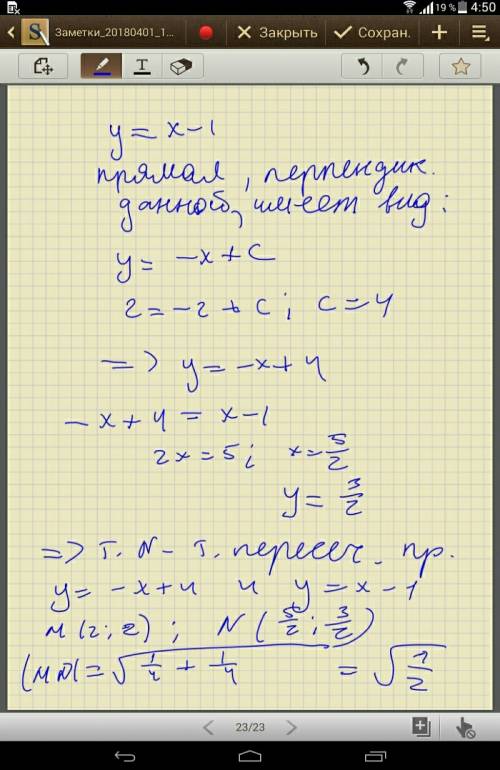 19 % 4:50
Заметки_20180401_1... Закрыть Сохран.
y = x - 1
прямая, перпендик.
данной, имеет вид:
y = -x + C
2 = -2 + C; C = 4
=> y = -x + 4
-x + 4 = x - 1
2x = 5; x = 5/2
y = 3/2
=> т. N - т. пересеч. пр.
y = -x + 4 и y = x - 1
M(2; 2); N(5/2; 3/2)
|MN| = √(1/4 + 1/4) = √(1/2)
23/23